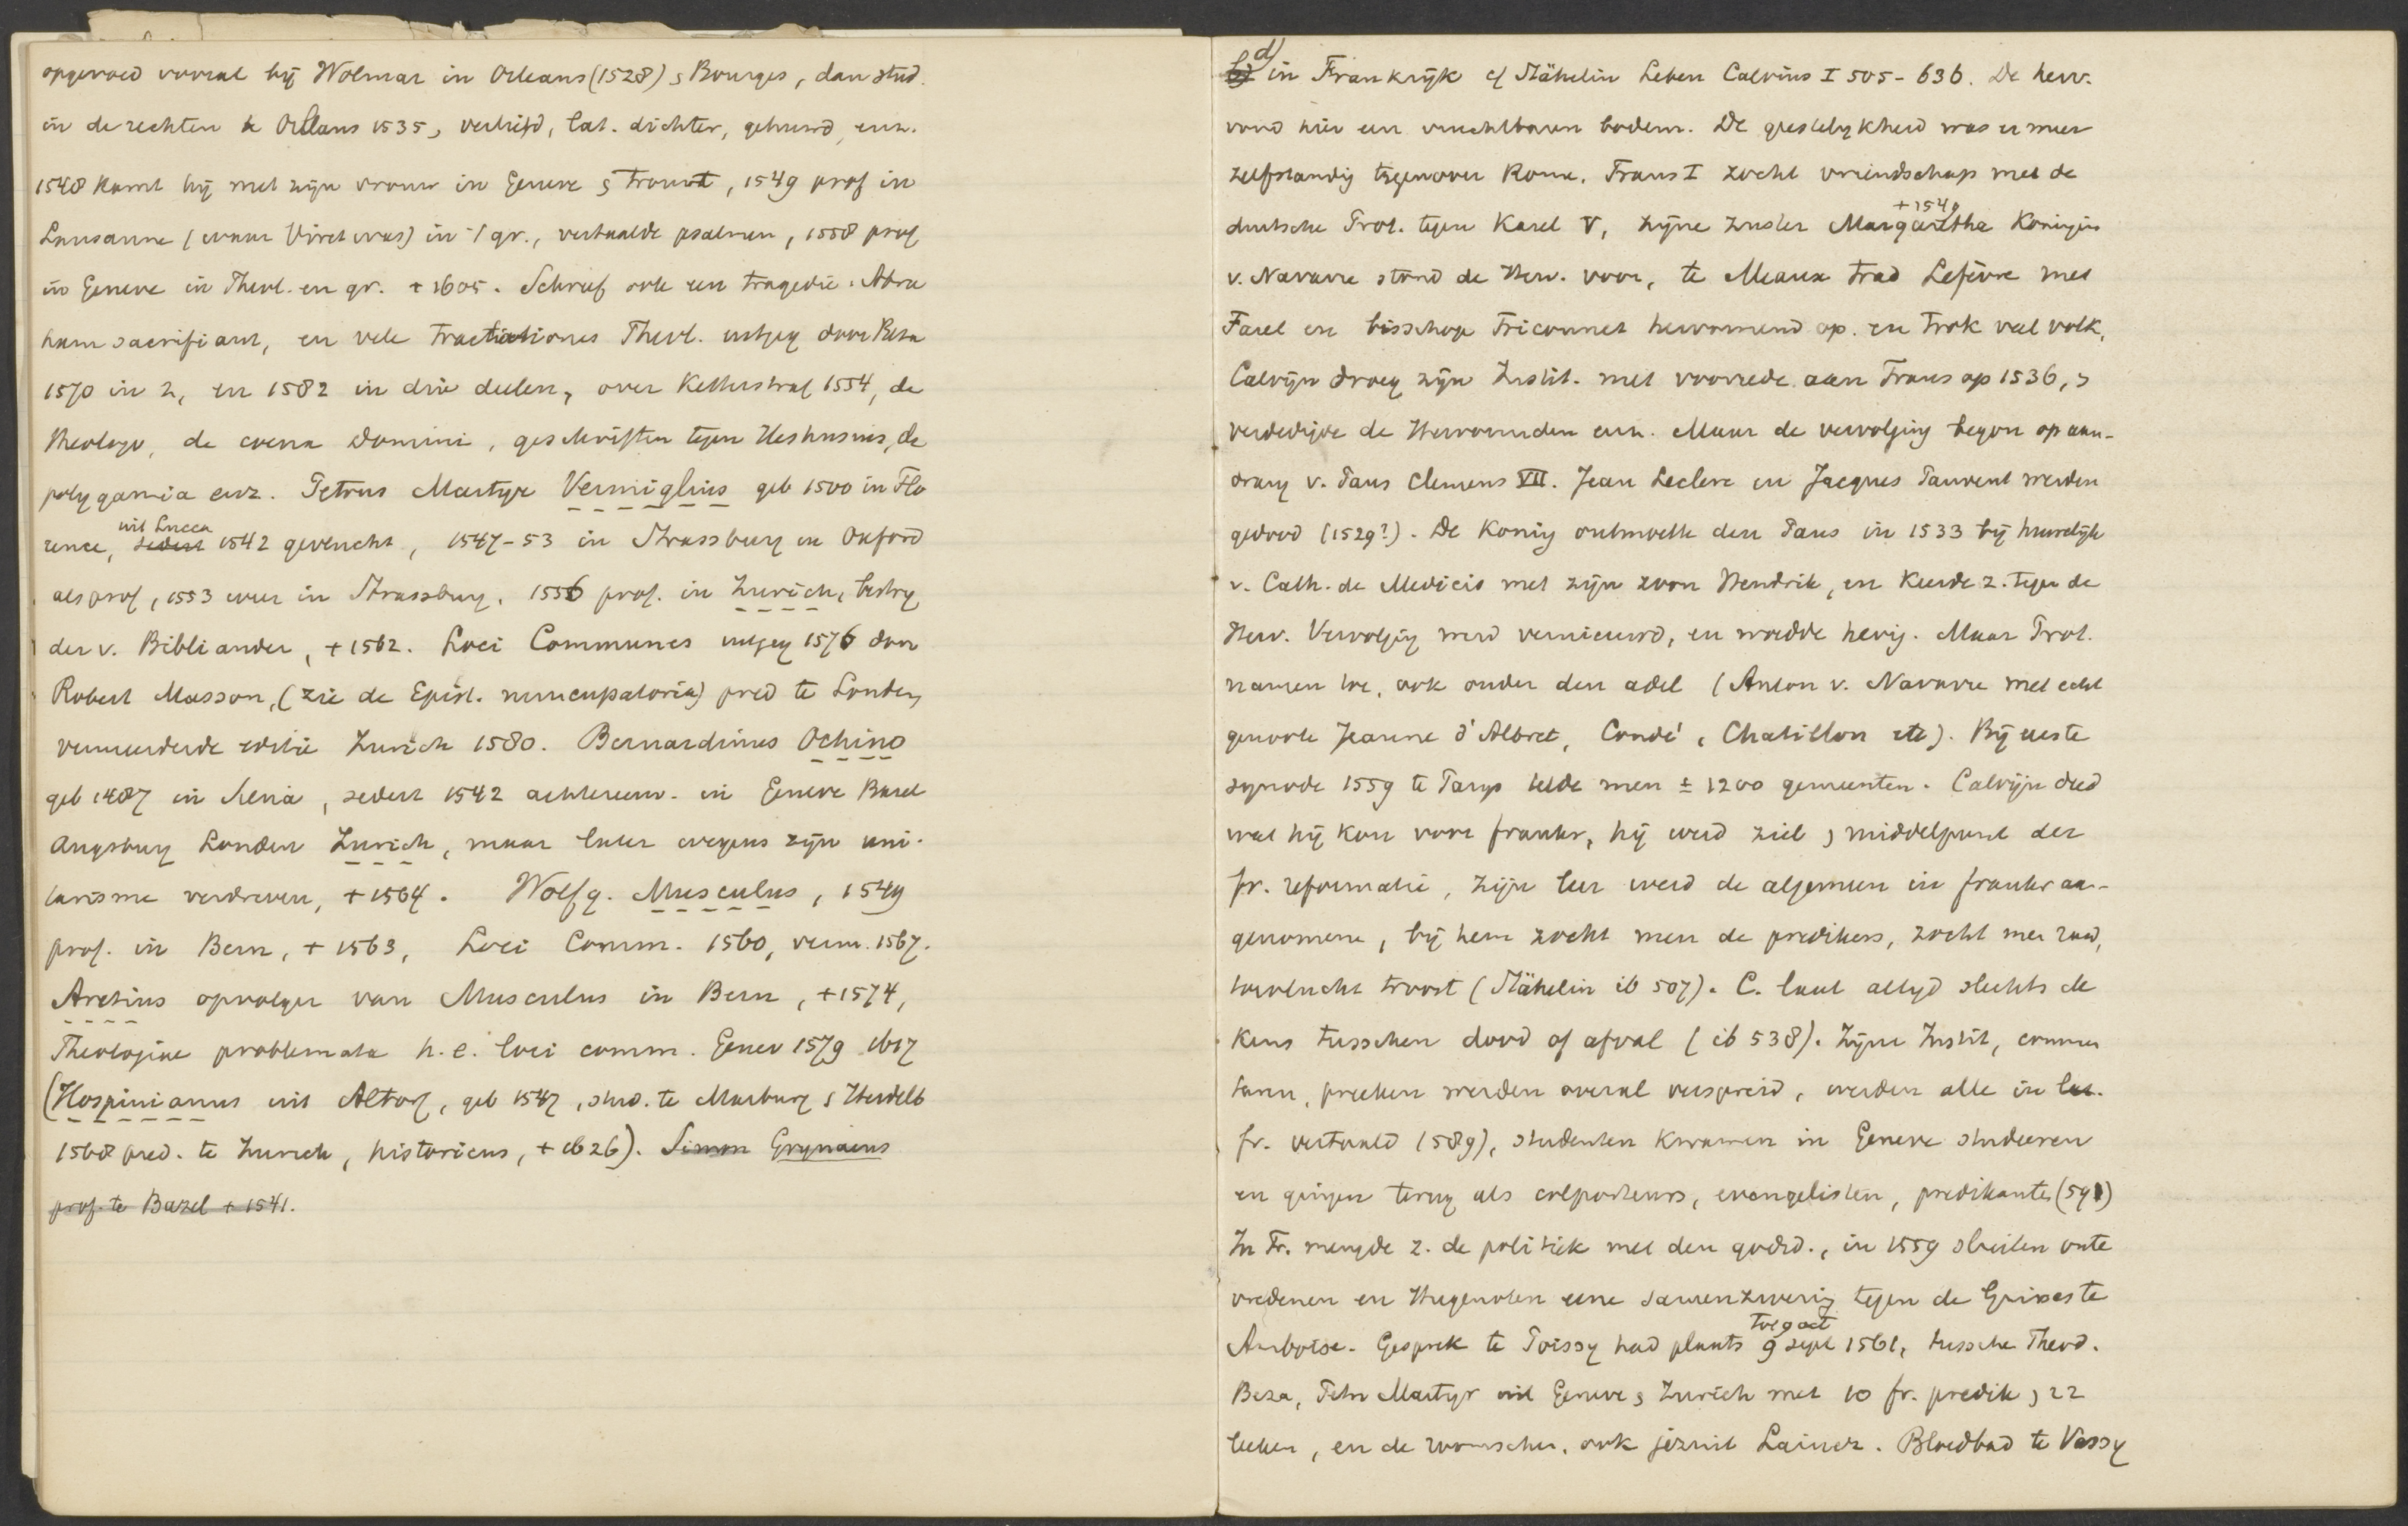 opgevoed vooral bij Wolmar in Orleans (1528) & Bourges, dan stud.
in de rechten te Orleans 1535, verliefd, lat. dichter, gehuwd, enz.
1548 komt hij met zijn vrouw in Geneve & trouwt, 1549 prof in
Lausanne (waar Viret was) in 't gr., vertaalde psalmen, 1558 prof
in Geneve in Theol. en gr. + 1605. Schreef ook een tragedie: Abra
ham sacrifiant, en vele tractationes Theol. uitgeg door Beza
1570 in 2, en 1582 in drie deelen, over Ketterstraf 1554, de
theologo, de coena Domini, geschriften tegen Heshusius, de
polygamia enz. Petrus Martyr Vermiglius geb 1500 in Flo
rence, sedert uit Lucca 1542 gevlucht, 1547-53 in Strassburg en Oxford
als prof, 1553 weer in Strassburg, 1556 prof. in Zurich, bestry
der v. Bibliander, + 1562. Loci Communes uitgeg 1576 door
Robert Masson, (zie de Epist. nuncupatoria) pred te Londen
vermeerderde editie Zurich 1580. Bernardinus Ochino
geb 1487 in Siena, sedert 1542 achtereenv. in Geneve Basel
Augsburg Londen Zurich, maar later wegens zijn uni-
tarisme verdreven, + 1564. Wolfg. Musculus, 1549
prof. in Bern, + 1563, Loci Comm. 1560, verm. 1567.
Aretius opvolger van Musculus in Bern, + 1574,
Theologiae problemata h.e. loci comm. Genev 1579 1617
(Hospinianus uit Altorf, geb 1547, stud. te Marburg & Heidelb
1568 pred. te Zurich, historicus, + 1626). Simon Grynaeus
prof. te Bazel + 1541.
b) d) in Frankrijk cf Stähelin Leben Calvins I 505-636. De herv.
vond hier een vruchtbaren bodem. De geestelykheid was er meer
zelfstandig tegenover Rome. Frans I zocht vriendschap met de
duitsche Prot. tegen Karel V, zijne zuster Margaretha + 1549 Koningin
v. Navarre stond de Herv. voor, te Meaux trad Lefèvre met
Farel en bisschop Briconnet hervormend op. en trok veel volk,
Calvijn droeg zijn Instit. met voorrede aan Frans op 1536, &
verdedigde de Hervormden enz. Maar de vervolging begon op aan-
drang v. Paus Clemens VII. Jean Leclerc en Jacques Pauvent werden
gedood (1529?). De Koning ontmoette den Paus in 1533 bij huwelijk
v. Cath. de Medicis met zijn zoon Hendrik, en Keerde z. tegen de
Herv. Vervolging werd vernieuwd, en woedde hevig. Maar Prot.
namen toe, ook onder den adel (Anton v. Navarre met echt
genoote Jeanne d'Albret, Condé, Chatillon etc). Bij eerste
synode 1559 te Parys telde men ± 1200 gemeenten. Calvijn deed
wat hij kon voor frankr, hij werd ziel & middelpunt der
fr. reformatie, zijn leer werd de algemeen in frankr aan-
genomene, bij hem zocht men de predikers, zocht men raad,
toevlucht troost (Stähelin ib 507). C. laat altyd slechts de
Keus tusschen dood of afval (ib 538). Zijne Instit, commen
taren, preeken werden overal verspreid, werden alle in lat.
fr. vertaald (589), studenten Kwamen in Geneve studeeren
en gingen terug als colporteurs, evangelisten, predikanten (591)
In Fr. mengde z. de politiek met den godsd., in 1559 sluiten onte
vredenen en Hugenoten eene samenzwering tegen de Guises te
Amboise. Gesprek te Poissy had plaats 9 sept tot 9 oct 1561, tussche Theod.
Beza, Petr Martyr uit Geneve & Zurich met 10 fr. predik & 22
leeken, en de roomschen, ook jezuit Lainez. Bloedbad te Vassy